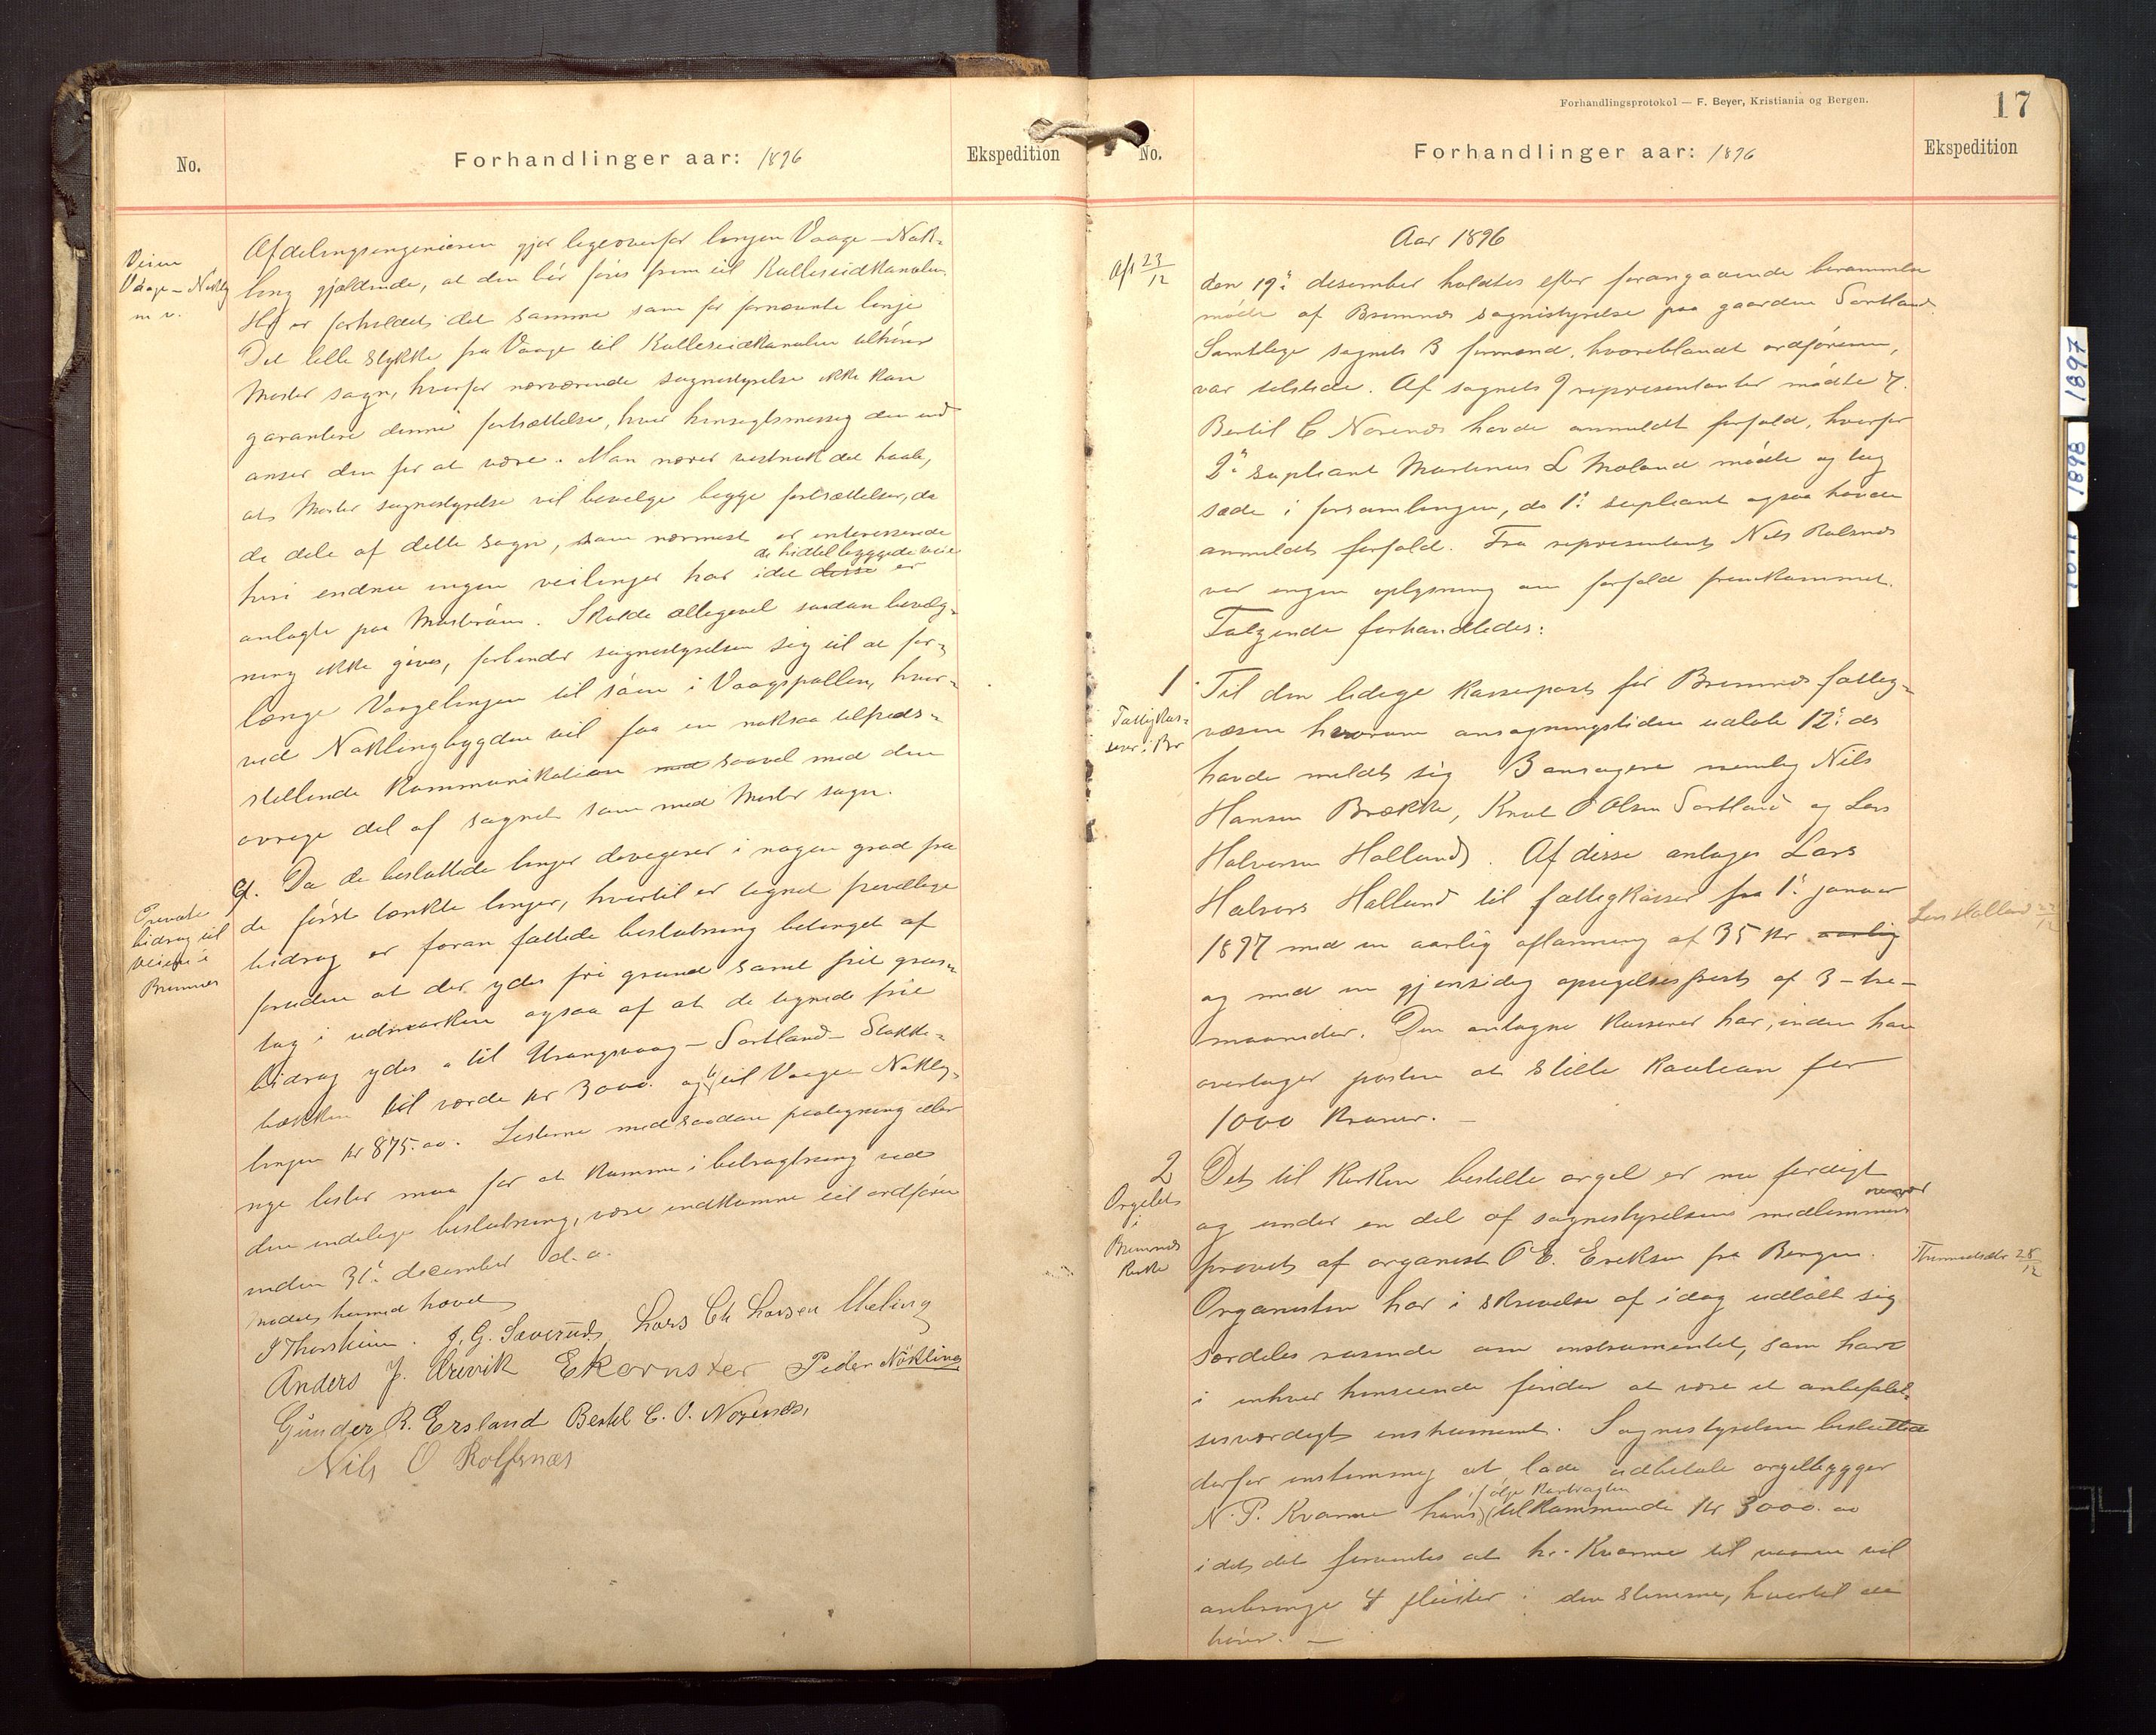 No.
Forhandlinger aar: 1896
Ekspedition
Veien
Vaage – Nøkling
m v.
Afdelingsingeniøren gjør ligeoverfor linjen Vaage – Nøk-
ling gjældende, at den bør føres frem til Kulleseidkanalen.
Her er forholdet det samme som for fornævnte linje
Det lille stykke fra Vaage til Kulleseidkanalen tilhører
Moster sogn, hvorfor nærværende sognestyrelse ikke kan
garantere denne fortsættelse, hvor hensigtsmessig den end
anser den for at være. Man nærer vistnok det haab,
at Moster sognestyrelse vil bevilge begge fortsættelser, da
de dele af dette sogn, som nærmest er interesserede
heri endnu ingen veilinjer har idet disse er
de hidtil byggede veie
anlagte paa Mosterøen. Skulde alligevel saadan bevilg-
ning ikke gives, forbinder sognestyrelsen sig til at for-
længe Vaagelinjen til søen i Vaagspollen, hvor-
ved Nøklingbygden vil faa en noksaa tilfreds-
stillende Kommunikation med saavel med den
øvrige del af sognet som med Moster sogn.
Private
bidrag til
veiene i
Bremnes
g. Da de besluttede linjer devegerer i nogen grad fra
de først tænkte linjer, hvortil er tegnet frevillige
bidrag er foran fattede beslutning betinget af
foruden at der ydes fri grund samt frit grus-
tag i udmarken ogsaa af at de tegnede frie
bidrag ydes a til Urangsvaag – Sortland – Stokke-
bækken til værde kr 3000. og b) til Vaage Nøkling-
linjen kr 875.00. Listerne med saadan paategning eller
nye lister maa for at komme i betragtning ved
den endelige beslutning, være indkomne til ordføren
inden 31te december d. a.
Mødet hermed hævet
J Thorsheim. J. G. Sæverud Lars Ch Larsen Meling
Anders J. Urevik E Kornster Peder Nökling
Gunder R. Ersland Bertil C. O. Norenæs,
Nils O Rolfsnæs
Forhandlingsprotokol — F. Beyer, Kristiania og Bergen.
17
No.
Forhandlinger aar: 1896
Ekspedition
Aar 1896
Afs 23/12
den 19de desember holdtes efter forangaaende berammelse
møde af Bremnes sognestyrelse paa gaarden Sortland.
Samtlige sognets 3 formænd, hvoreblandt ordføreren,
var tilstede. Af sognets 9 repræsentanter mødte 7.
Bertil C Norenæs havde anmeldt forfald, hvorfor
2den supleant Martinus L Moland mødte og tog
sæde i forsamlingen, da 1ste supleant ogsaa havde
anmeldt forfald. Fra repræsentant Nils Rolsnæs
var ingen oplysning om forfald fremkommet.
Følgende forhandledes:
1
Fattigkas-
serer i Br
Til den ledige Kasserpost for Bremnes fattig-
væsen hvorom ansøgningstiden udløb 12te ds
havde meldt sig 3 ansøgere nemlig Nils
Hansen Brække, Knut O Olsen Sortland og Lars
Halvorsen Halland). Af disse antages Lars
Halvors Halland til fattigkasser fra 1ste januar
1897 med en aarlig aflønning af 35 kr aarlig
og med en gjensidig opsigelsesfrist af 3 – tre –
maaneder. Den antagne Kasserer har, inden han
overtager posten at stille Kaution for
1000 Kroner. –
Lars Halland 22/12
2
Orgelet
i
Bremnes
Kirke
Det til Kirken bestilte orgel er nu færdigt
og under en del af sognestyrelsens medlemmers
nærvær
prøvet af organist O E. Eriksen fra Bergen.
Thunestvedt 28/12
Organisten har i skrivelse af idag udtalt sig
særdeles rosende om instrumentet, som han
i enhver henseende finder at være et anbefalel-
sesværdigt instrument. Sognestyrelsen besluttede
derfor enstemmig at lade udbetale orgelbygger
N. P. Kvarme hans tilkommende kr 3000.00
ifølge Kontragten
idet det forventes at hr. Kvarme til vaaren vil
anbringe 4 fløiter i den stemme, hvortil de
hører. –
1897
1898